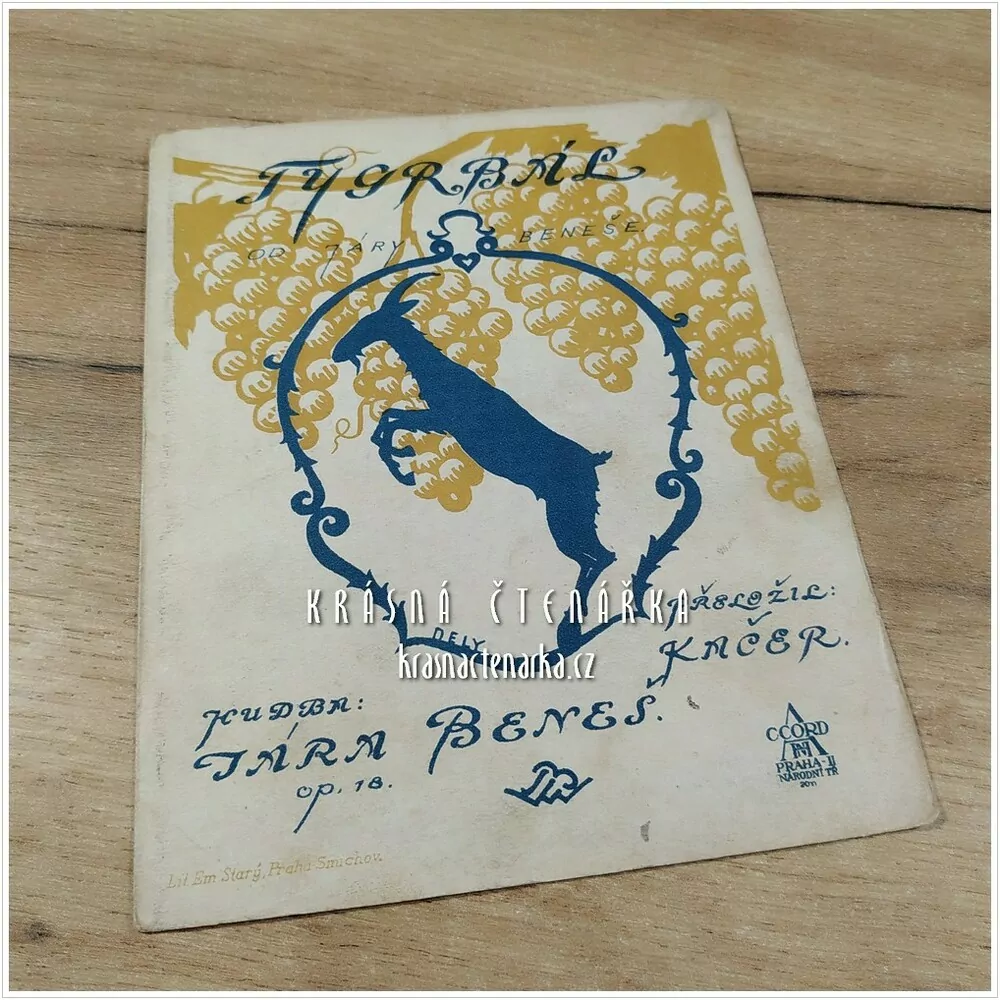 TYGRBÁL
OD JÁRY BENEŠE.
KRÁSNÁ ČTENÁŘKA
krasnactenarka.cz
DELY
PŘELOŽIL:
KAČER.
HUDBA:
JÁRA BENEŠ.
op. 18.
ACCORD
PRAHA-II
NÁRODNÍ TŘ
Lit Em Starý, Praha-Smíchov.